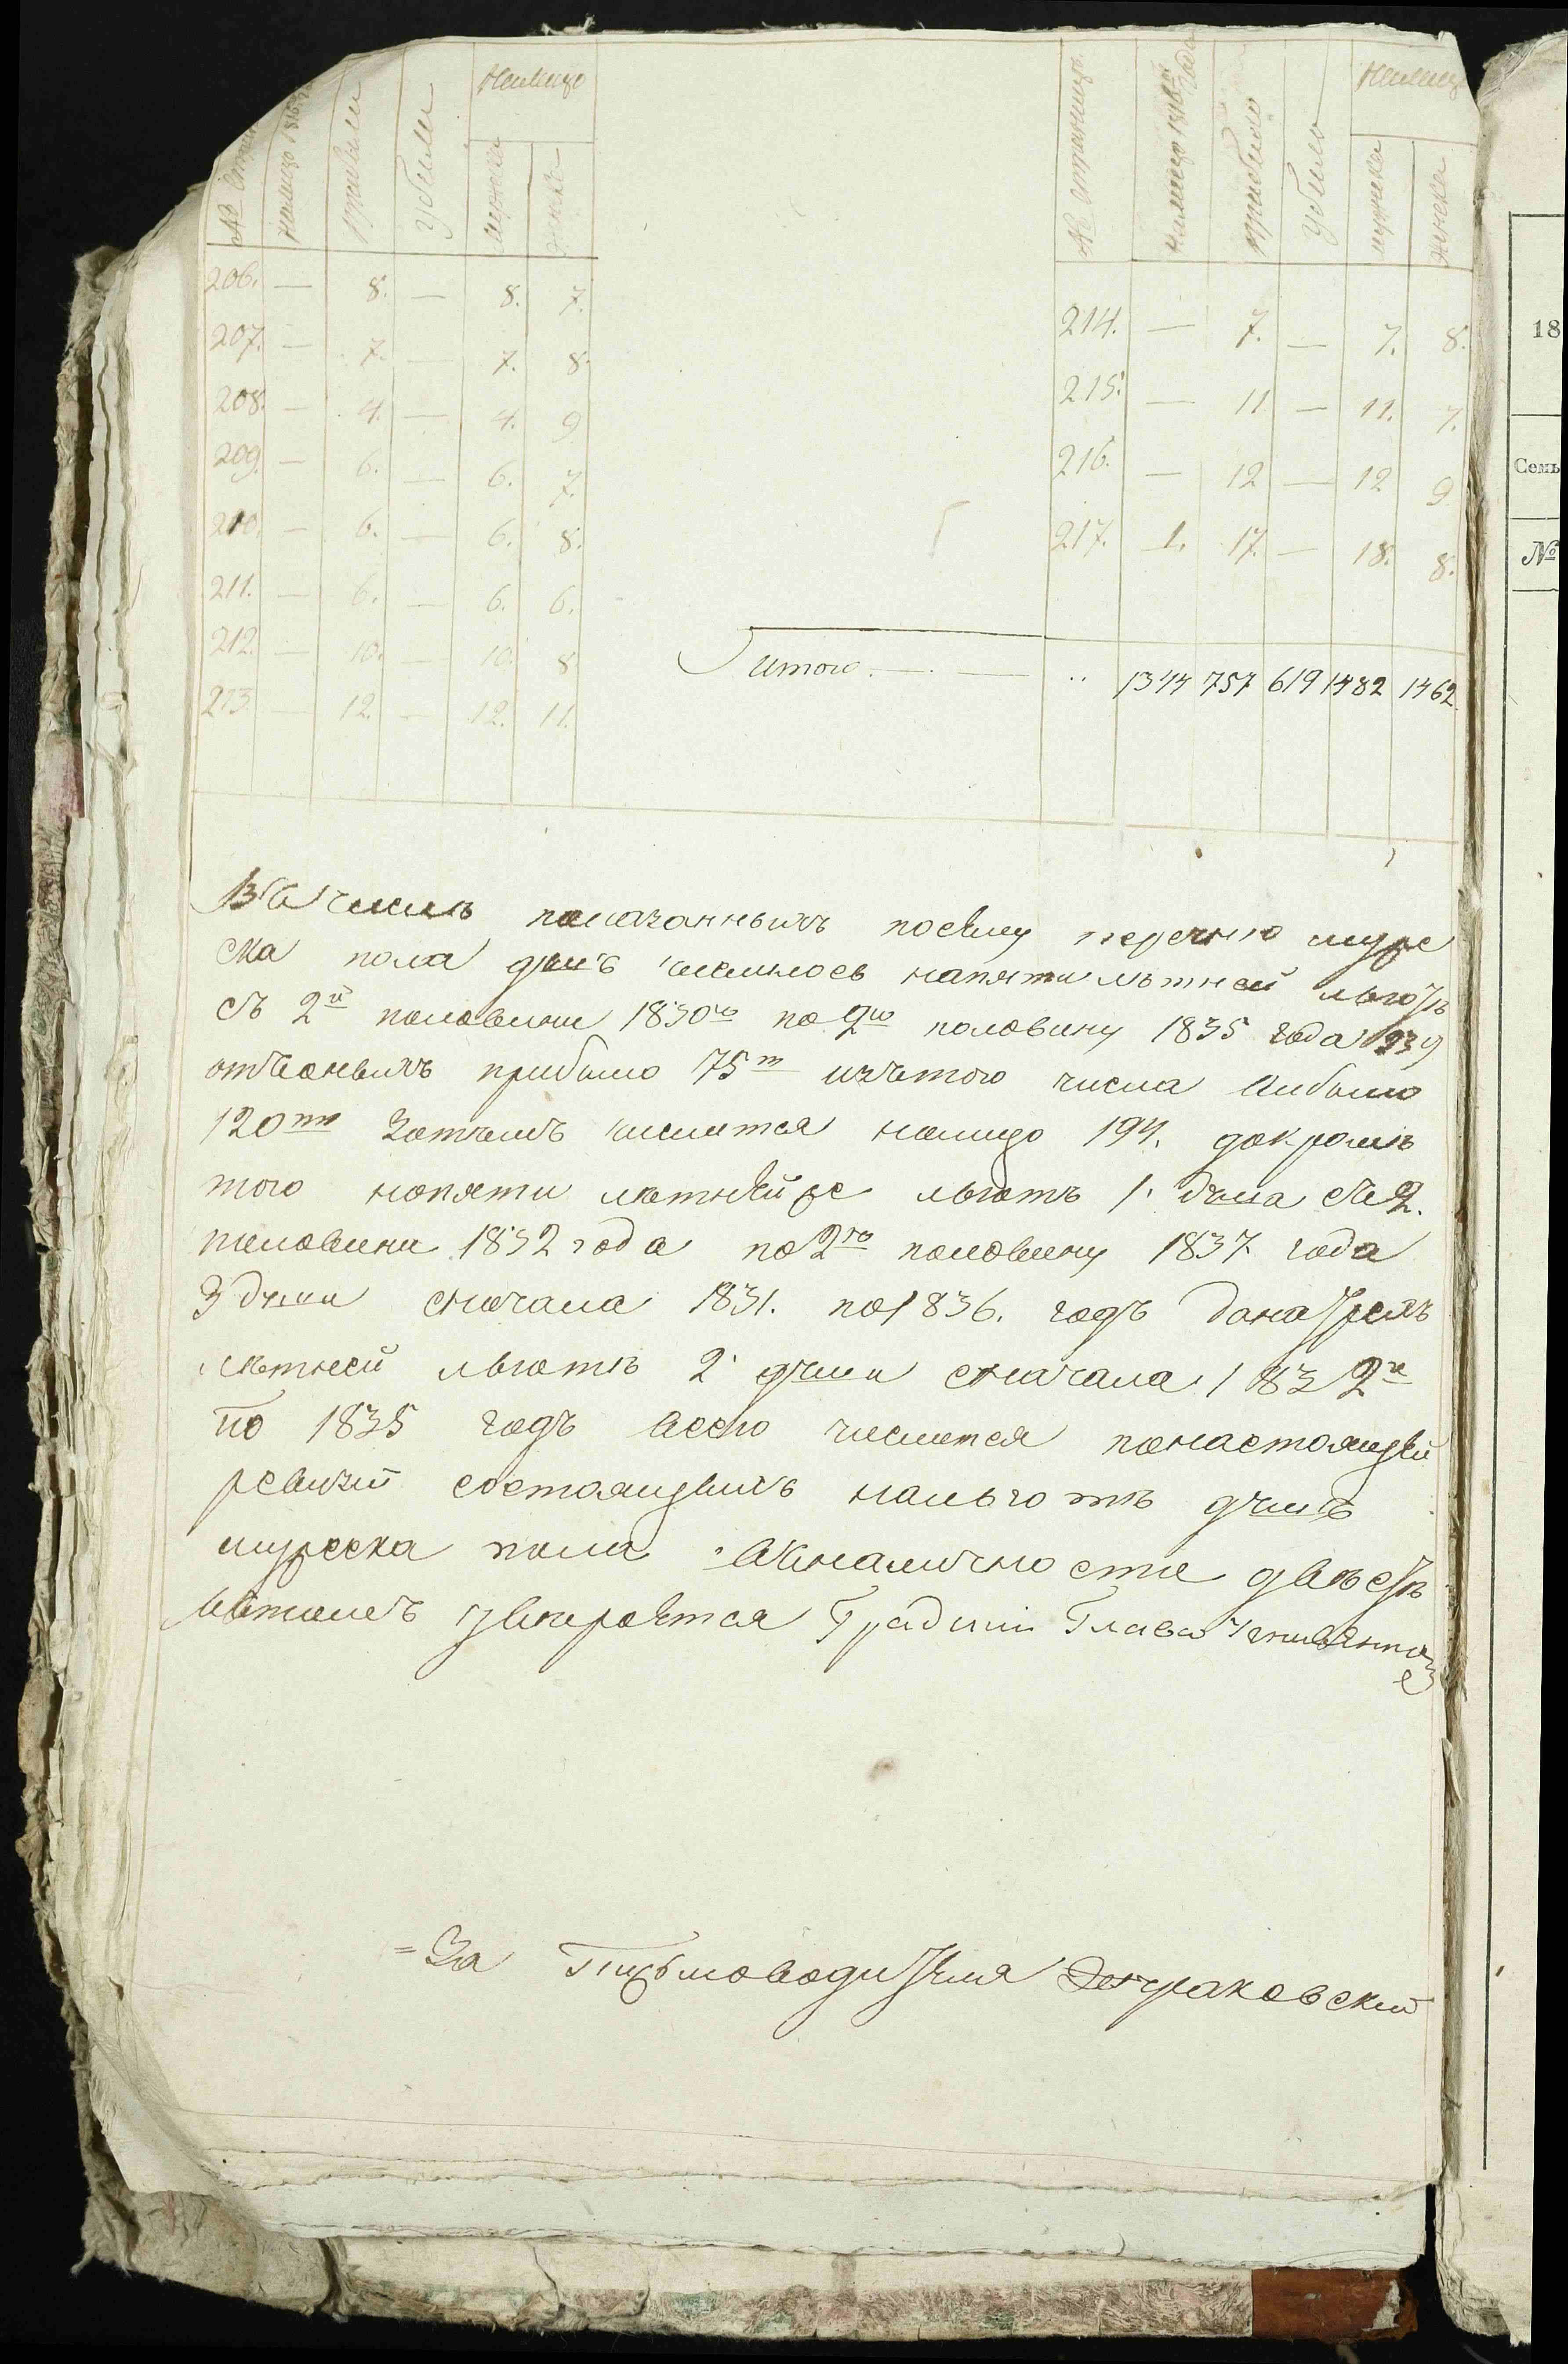 № налицо 1816 прибыли убыли налицо мужеска женска
206. — 8. — 8. 7.
207. — 7. — 7. 8.
208. — 4. — 4. 9
209. — 6. — 6. 7.
210. — 6. — 6. 8.
211. — 6. — 6. 6.
212. — 10. — 10. 8
213. — 12. — 12. 11.
№ налицо прибыло убыло налицо мужеска женска
214. — 7. — 7. 8.
215. — 11 — 11. 7.
216. — 12 — 12 9
217. 1. 17. — 18. 8.
итого — — 1344 757 619 1482 1462
Въ числѣ показанныхъ посему перечню муже
ска пола душъ числилось напяти лѣтней льготѣ
съ 2й половины 1830го по 2ю половину 1835 года 239
прибыло 75ть изътого числа выбыло
120ть Затемъ числится налицо 194. докромѣ
того напяти летнейже льготѣ 1. душа съ 2.
половины 1832 года по 2ю половину 1837 года
3 души сначала 1831. по 1836. годъ
летней льготѣ 2 души сначала 1832го
по 1835 годъ всего числится понастоящей
ревизии состоящихъ нальготѣ душъ
мужеска пола двѣстѣ
Градский Глава
За Письмоводителя
18
Семь
№